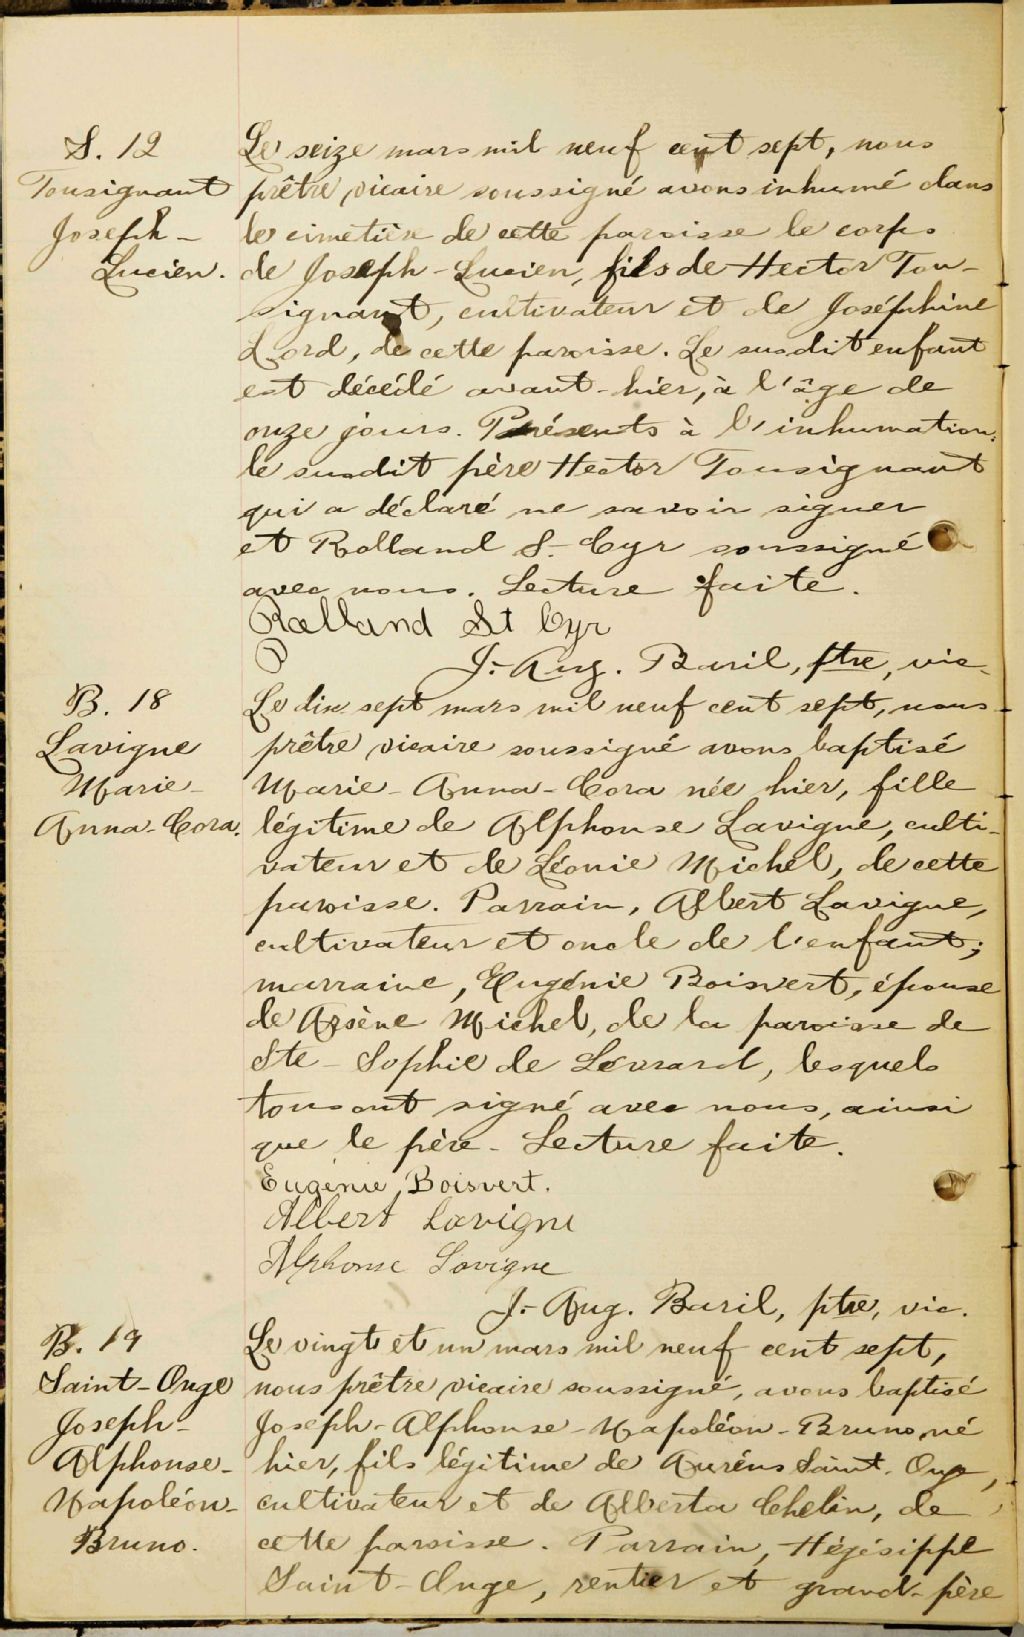 S. 12
Tousignant
Joseph-
Lucien.
Le seize mars mil neuf cent sept, nous
prêtre vicaire soussigné avons inhumé dans
le cimetière de cette paroisse le corps
de Joseph-Lucien, fils de Hector Tou-
signant, cultivateur et de Joséphine
Lord, de cette paroisse. Le susdit enfant
est décédé avant-hier, à l'âge de
onze jours. Présents à l'inhumation:
le susdit père Hector Tousignant
qui a déclaré ne savoir signer
et Rolland S.-Cyr soussigné
avec nous. Lecture faite.
Rolland St Cyr
J.-Aug. Baril, ptre, vic.
B. 18
Lavigne
Marie-
Anna-Cora.
Le dix sept mars mil neuf cent sept, nous
prêtre vicaire soussigné avons baptisé
Marie-Anna-Cora née hier, fille
légitime de Alphonse Lavigne, culti-
vateur et de Léonie Michel, de cette
paroisse. Parrain, Albert Lavigne,
cultivateur et oncle de l'enfant;
marraine, Eugénie Boisvert, épouse
de Arsène Michel, de la paroisse de
Ste-Sophie de Levrard, lesquels
tous ont signé avec nous, ainsi
que le père. Lecture faite.
Eugénie Boisvert.
Albert Lavigne
Alphonse Lavigne
J.-Aug. Baril, ptre, vic.
B. 19
Saint-Onge
Joseph-
Alphonse-
Napoléon-
Bruno.
Le vingt et un mars mil neuf cent sept,
nous prêtre vicaire soussigné, avons baptisé
Joseph-Alphonse-Napoléon-Bruno, né
hier, fils légitime de Auréus Saint-Onge,
cultivateur et de Alberta Chelin, de
cette paroisse. Parrain, Hégésippe
Saint-Onge, rentier et grand-père